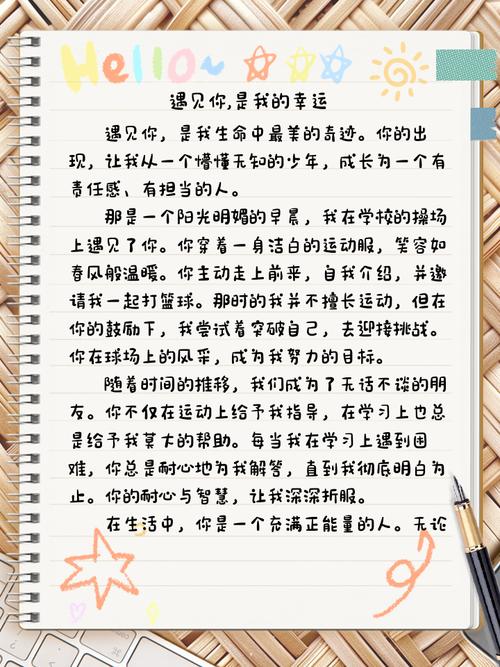 Hello~
遇见你,是我的幸运
遇见你，是我生命中最美的奇迹。你的出
现，让我从一个懵懂无知的少年，成长为一个有
责任感、有担当的人。
那是一个阳光明媚的早晨，我在学校的操场
上遇见了你。你穿着一身洁白的运动服，笑容如
春风般温暖。你主动走上前来，自我介绍，并邀
请我一起打篮球。那时的我并不擅长运动，但在
你的鼓励下，我尝试着突破自己，去迎接挑战。
你在球场上的风采，成为我努力的目标。
随着时间的推移，我们成为了无话不谈的朋
友。你不仅在运动上给予我指导，在学习上也总
是给予我莫大的帮助。每当我在学习上遇到困
难，你总是耐心地为我解答，直到我彻底明白为
止。你的耐心与智慧，让我深深折服。
在生活中，你是一个充满正能量的人。无论